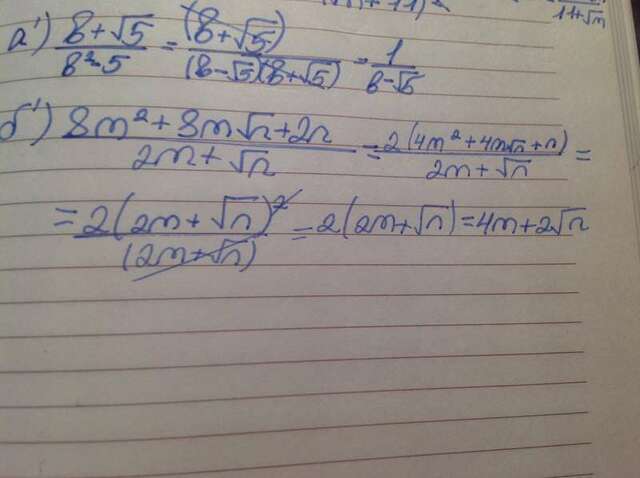 а') (в + √5)/(в² - 5) = (в + √5)/((в - √5)(в + √5)) = 1/(в - √5)
б') (8m² + 8m√n + 2n)/(2m + √n) = 2(4m² + 4m√n + n)/(2m + √n) =
= 2(2m + √n)²/(2m + √n) = 2(2m + √n) = 4m + 2√n